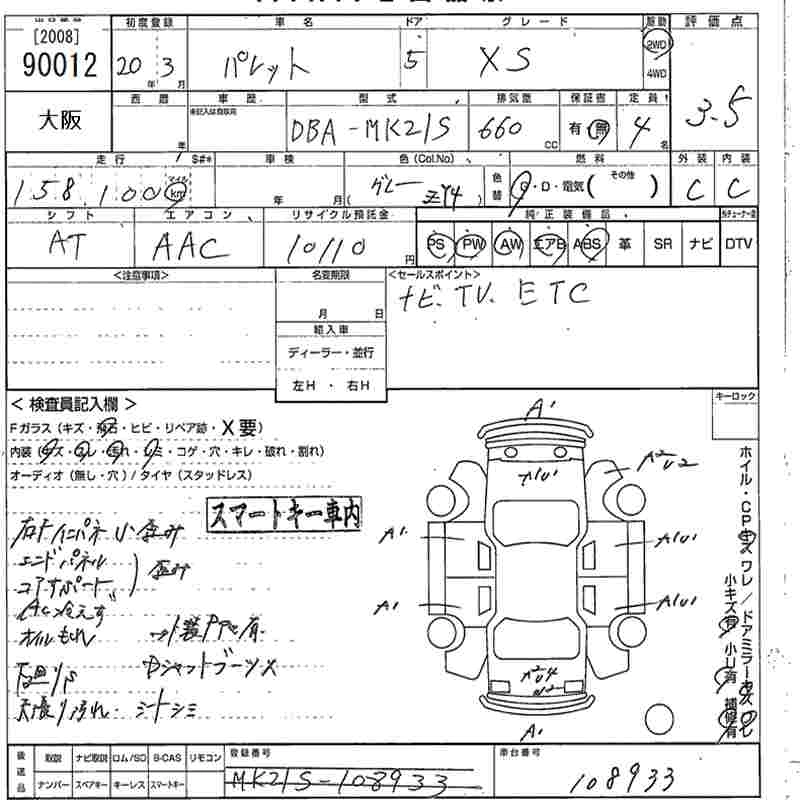 [2008]
90012
初度登録 車名 ドア グレード 駆動 評価点
20年 3月 パレット 5 XS 2WD 4WD 3.5
大阪
西暦 車歴 型式 排気量 保証書 定員
年 未記入は自家用 DBA-MK21S 660 CC 有・無 4名
走行 S#* 車検 色(Col.No) 色替 燃料 外装 内装
158,100 マイル km 年 月 (グレー ZY4) G・D・電気( その他 ) C C
シフト エアコン リサイクル預託金 純正装備品
AT AAC 10110円 PS PW AW エアB ABS 革 SR ナビ DTV
<注意事項> 名変期限 <セールスポイント>
月 日 ナビ.TV. ETC
輸入車
ディーラー・並行
左H・右H
<検査員記入欄> キーロック
Fガラス(キズ・飛石・ヒビ・リペア跡・X要)
内装(キズ・スレ・汚れ・シミ・コゲ・穴・キレ・破れ・割れ)
オーディオ(無し・穴)/タイヤ(スタッドレス)
スマートキー車内
右Fインパネ U・歪み
エンドパネル
コアサポート 歪み
AC冷えず
オイルもれ
下廻りS Dシャフトブーツ×
天張り汚れ・シートシミ
A1
A1U1
A2U2
A1 A1U1
A1 A1U1
A2U4
A1
ホイル・CPキズ ワレ/ドアミラーキズ ワレ
小キズ有 小U有 補修有
後送品 取説 ナビ取説 ロム/SD B-CAS リモコン 登録番号 車台番号
ナンバー スペアキー キーレス スマートキー MK21S-108933 108933